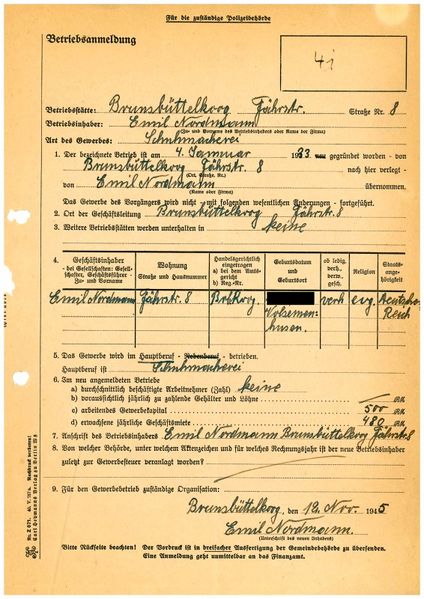 Für die zuständige Polizeibehörde
Betriebsanmeldung
4i
Betriebsstätte: Brunsbüttelkoog Fährstr. Straße Nr. 8
Betriebsinhaber: Emil Nordmann
(Zu- und Vorname des Betriebsinhabers oder Name der Firma)
Art des Gewerbes: Schuhmacherei
1. Der bezeichnete Betrieb ist am 4. Januar 1933 neu gegründet worden - von
Brunsbüttelkoog Fährstr. 8 nach hier verlegt -
(Ort, Straße, Nr.)
von Emil Nordmann übernommen.
(Name oder Firma)
Das Gewerbe des Vorgängers wird nicht - mit folgenden wesentlichen Änderungen - fortgeführt.
2. Ort der Geschäftsleitung Brunsbüttelkoog Fährstr. 8
3. Weitere Betriebstätten werden unterhalten in keine
4. Geschäftsinhaber - bei Gesellschaften: Gesellschafter, Geschäftsführer - Zu- und Vorname
Wohnung Straße und Hausnummer
Handelsrechtlich eingetragen a) bei dem Amtsgericht b) Reg.-Nr.
Geburtsdatum und Geburtsort
ob ledig, verh., verw. gesch.
Religion
Staatsangehörigkeit
Emil Nordmann Fährstr. 8 Brtkoog verh evg. Deutsches
Reich
5. Das Gewerbe wird im Hauptberuf - Nebenberuf - betrieben.
Hauptberuf ist Schuhmacherei
6. Im neu angemeldeten Betriebe
a) durchschnittlich beschäftigte Arbeitnehmer (Zahl) keine
b) voraussichtlich jährlich zu zahlende Gehälter und Löhne / RM.
c) arbeitendes Gewerbekapital 500 RM.
d) erwachsene jährliche Geschäftsmiete 480 RM.
7. Anschrift des Betriebsinhabers Emil Nordmann Brunsbüttelkoog Fährstr 8
8. Von welcher Behörde, unter welchem Aktenzeichen und für welches Rechnungsjahr ist der neue Betriebsinhaber
zuletzt zur Gewerbesteuer veranlagt worden?
9. Für den Gewerbebetrieb zuständige Organisation:
Brunsbüttelkoog, den 12. Nov. 1945
Emil Nordmann.
(Unterschrift des neuen Inhabers)
Bitte Rückseite beachten! Der Vordruck ist in dreifacher Ausfertigung der Gemeindebehörde zu übersenden.
Eine Anmeldung geht unmittelbar an das Finanzamt.